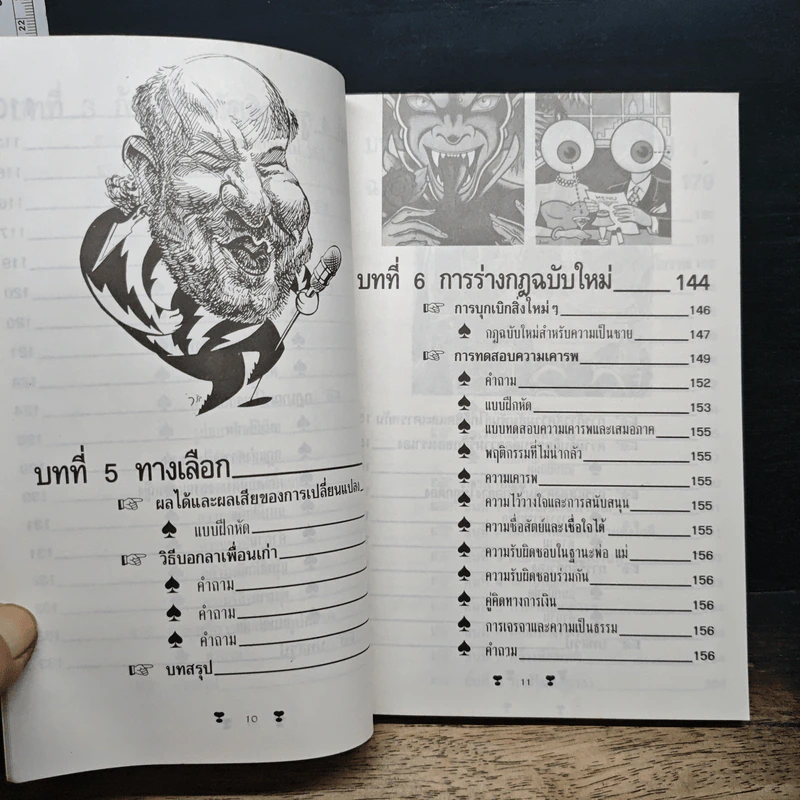 22
บทที่ 5 ทางเลือก
ผลได้และผลเสียของการเปลี่ยนแปลง
แบบฝึกหัด
วิธีบอกลาเพื่อนเก่า
คำถาม
คำถาม
คำถาม
บทสรุป
10
MENU
บทที่ 6 การร่างกฎฉบับใหม่ 144
การบุกเบิกสิ่งใหม่ ๆ 146
กฎฉบับใหม่สำหรับความเป็นชาย 147
การทดสอบความเคารพ 149
คำถาม 152
แบบฝึกหัด 153
แบบทดสอบความเคารพและเสมอภาค 155
พฤติกรรมที่ไม่น่ากลัว 155
ความเคารพ 155
ความไว้วางใจและการสนับสนุน 155
ความซื่อสัตย์และเชื่อใจได้ 155
ความรับผิดชอบในฐานะพ่อ แม่ 156
ความรับผิดชอบร่วมกัน 156
คู่คิดทางการเงิน 156
การเจรจาและความเป็นธรรม 156
คำถาม 156
11